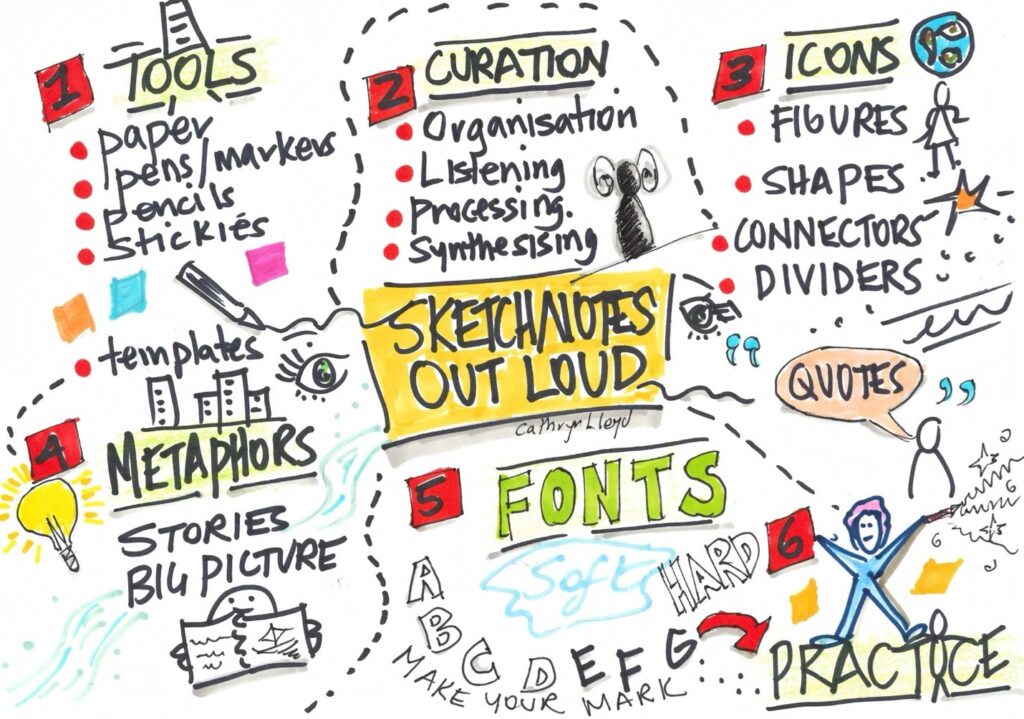 1 TOOLS
paper
pens/markers
pencils
stickies
templates
2 CURATION
Organisation
Listening
Processing.
Synthesising
3 ICONS
FIGURES
SHAPES
CONNECTORS
DIVIDERS
SKETCHNOTES
OUT LOUD
Cathryn Lloyd
QUOTES
4
METAPHORS
STORIES
BIG PICTURE
5 FONTS
Soft
HARD
A B C D E F G
MAKE YOUR MARK
6
PRACTICE